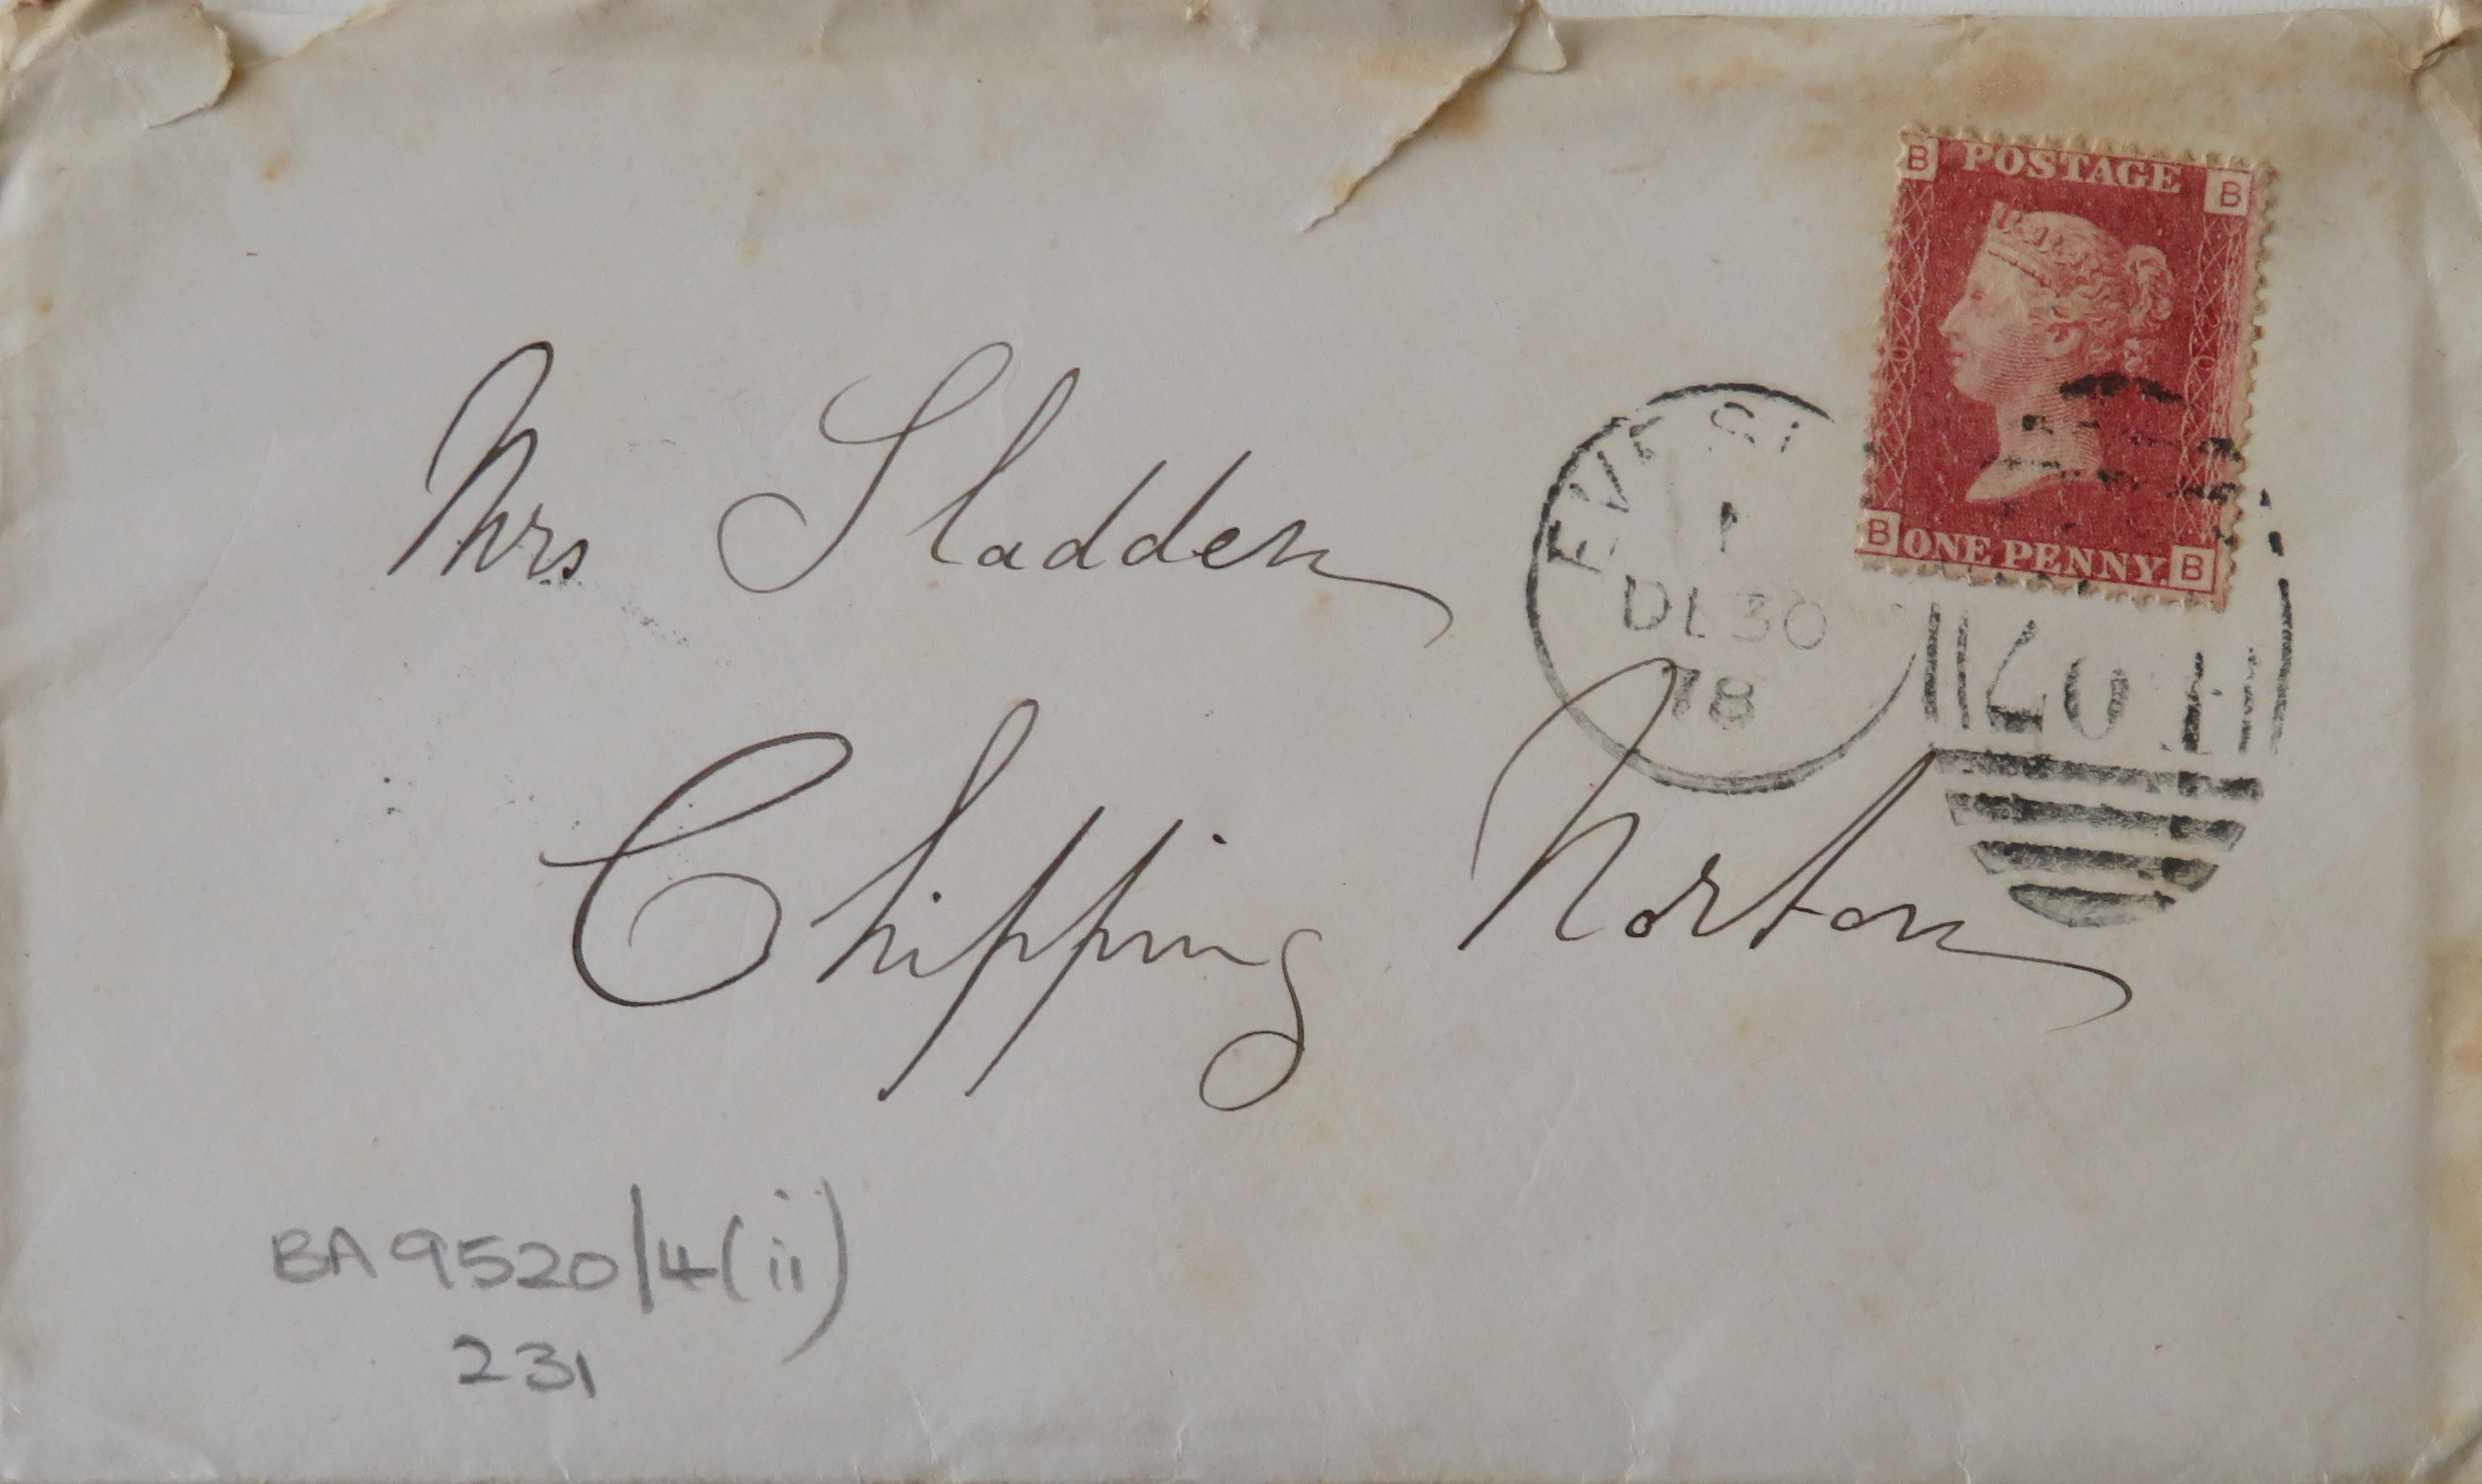 B POSTAGE B
B ONE PENNY. B
1
DE 30
78
Mrs Sladden
Chipping Norton
BA 9520/4(ii)
231